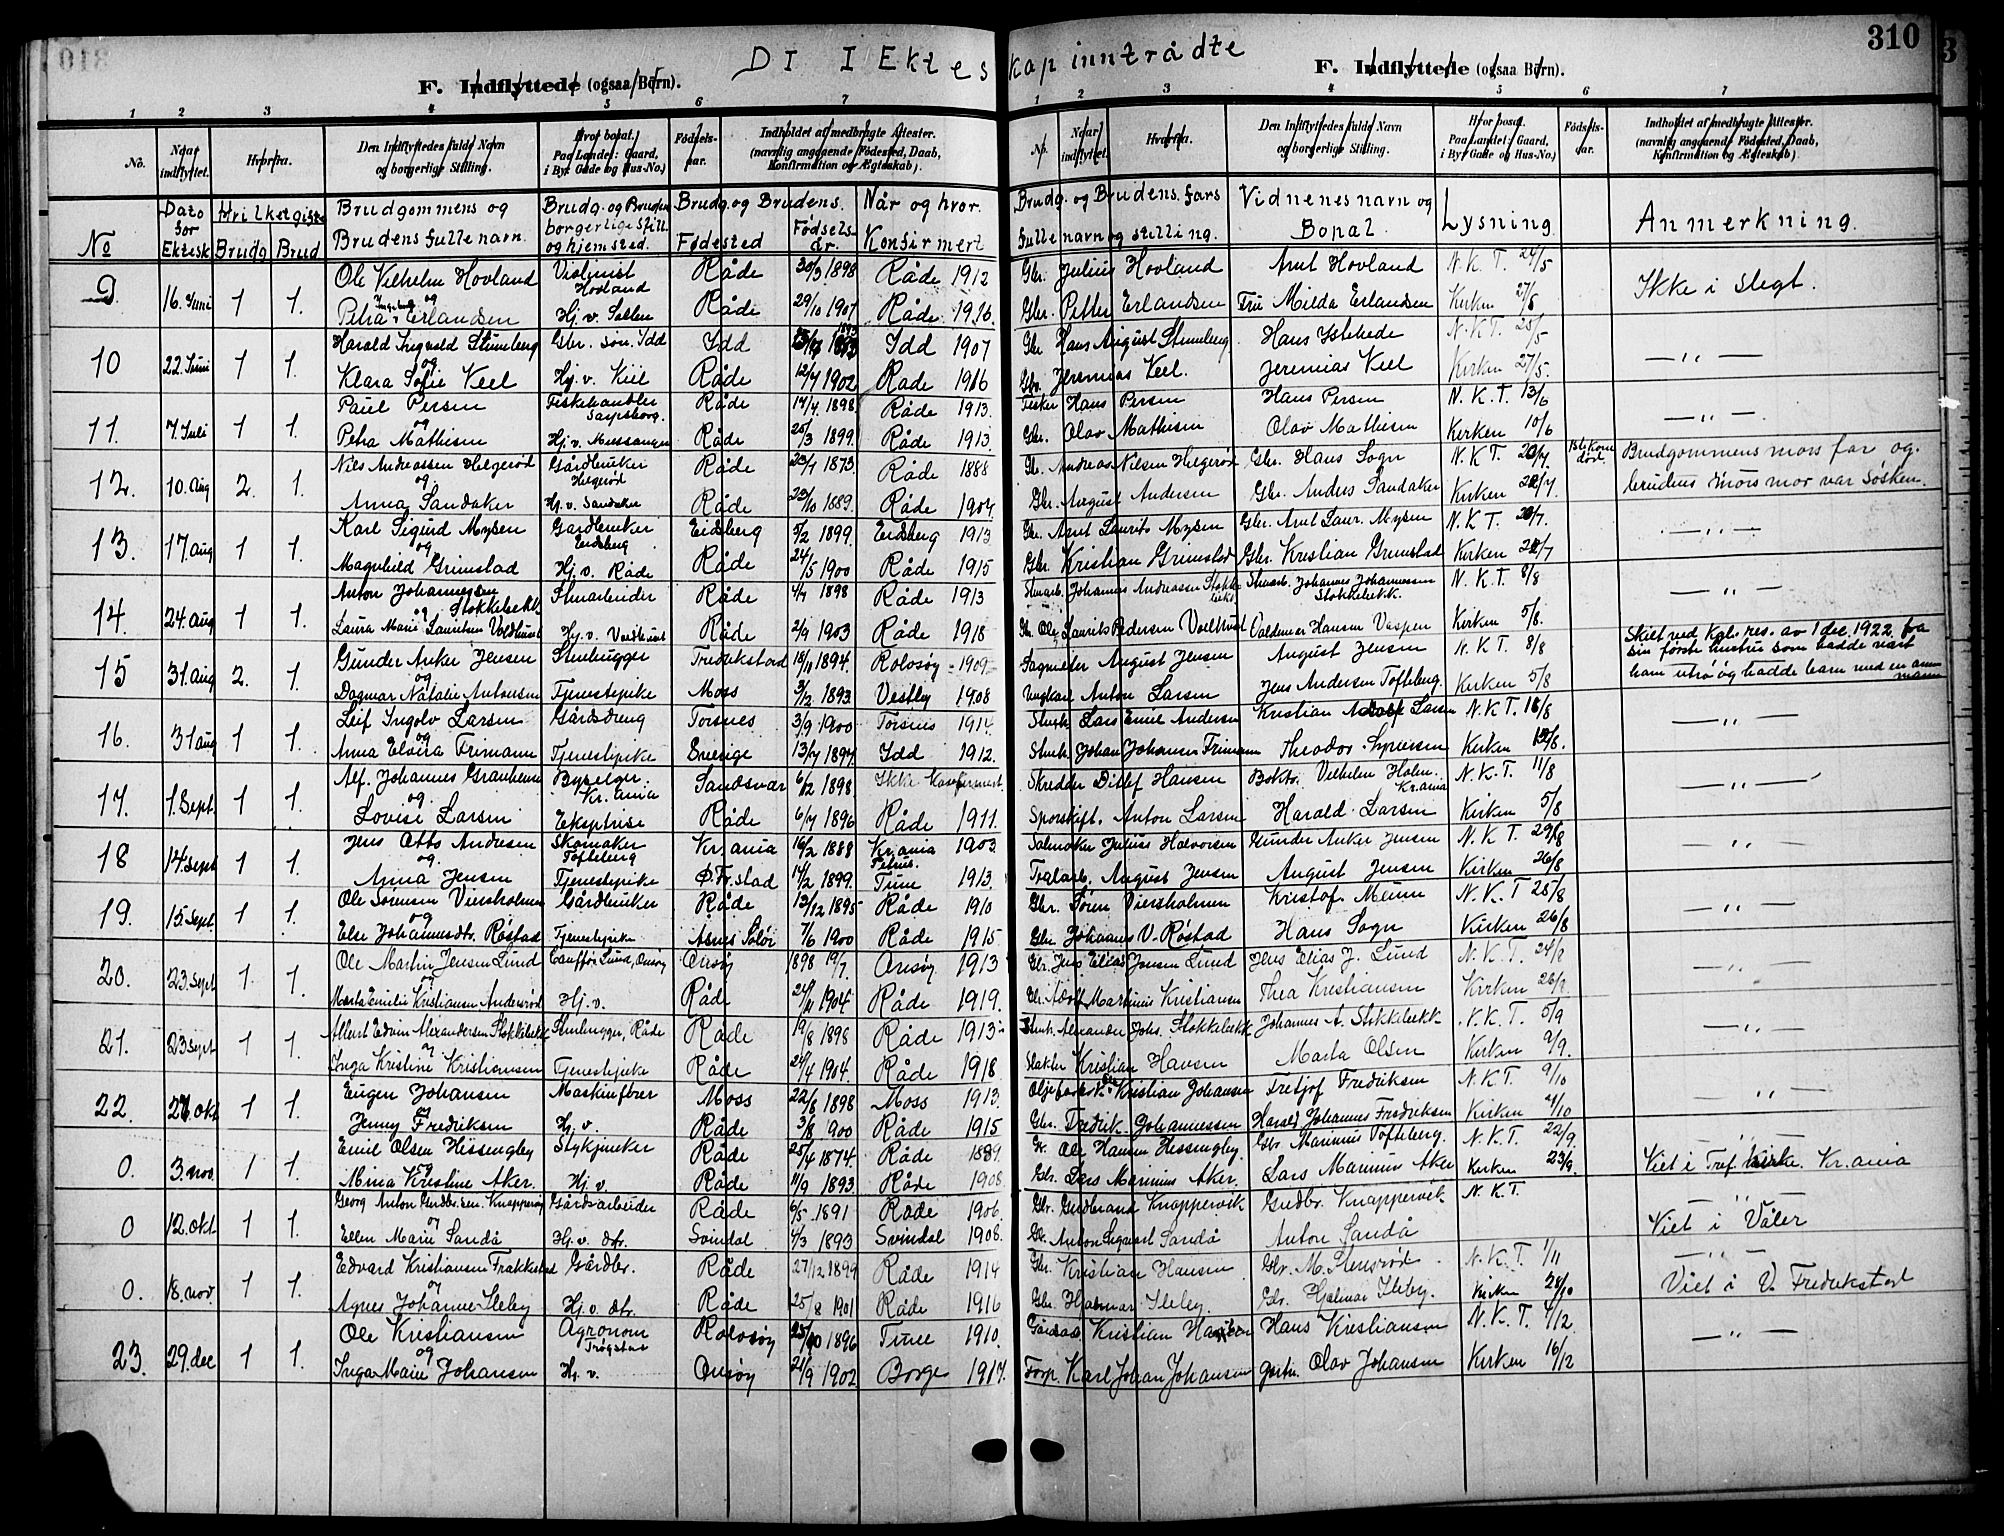 310
DI I Ektes kap inntrådte
F. Indflyttede (ogsaa Børn).
F. Indflyttede (ogsaa Børn).
1 2 3 4 5 6 7
1 2 3 4 5 6 7
No. Naar indflyttet. Hvorfra. Den Indflyttedes fulde Navn og borgerlige Stilling. Hvor bosat. Paa Landet: Gaard, i By: Gade og Hus-No.) Fødsels-aar. Indholdet af medbragte Attester. (navnlig angaaende Fødested, Daab, Konfirmation og Ægteskab).
No. Naar indflyttet. Hvorfra. Den Indflyttedes fulde Navn og borgerlige Stilling. Hvor bosat. Paa Landet: Gaard, i By: Gade og Hus-No.) Fødsels-aar. Indholdet af medbragte Attester. (navnlig angaaende Fødested, Daab, Konfirmation og Ægteskab).
No Dato for Ektesk Hvilket gifte Brudg Brud Brudgommens og Brudens fulle navn. Brudg. og Bruden borgerlige still. og hjemsted. Brudg. og Brudens. Fødested Fødsels-år. Når og hvor. Konfirmert
Brudg. og Brudens fars fulle navn og stilling. Vidnenes navn og Bopal. Lysning Anmerkning.
9 16. Juni 1 1. Ole Vilhelm Hovland Violinist Hovland Råde 30/3 1898 Råde 1912 Gbr. Julius Hovland Arnt Hovland N.K.T. 24/5 Ikke i slegt.
og Petra Ingeborg Erlandsen Hj. v. Råde 29/10 1901 Råde 1916. Gbr. Petter Erlandsen Fru Milda Erlandsen Kirken
10 22. Juni 1 1. Harald Ingvald Stumberg Gbr. søn. Idd Idd Idd 1907 Gbr Hans August Stumberg Hans N.K.T. 25/5 — " —
og Klara Sofie Keel Hj. v. Kiil Råde 12/7 1902 Råde 1916 Gbr. Jeremias Keel. Jeremias Keel Kirken 27/5.
11. 7. Juli 1 1. Paul Persen Fiskehandler Sarpsborg. Råde 17/4. 1898. Råde 1913. Fisker Hans Persen Hans Persen N.K.T. 13/6 — " —
og Petra Mathisen Hj. v. Råde 25/3 1899. Råde 1913. Gbr. Olav Mathisen Olav Mathisen Kirken 10/6
12. 10. Aug 2. 1. Nils Andreassen Helgerød Gårdbruker Helgerød Råde 1873. Råde 1888 Gb. Andreas Nilsen Helgerød Gbr. Hans Sogn N.K.T. Brudgommens mors far og
og Anna Sandaker Hj. v. Sandaker Råde 1889. Råde 1904 Gbr. August Andersen Gbr. Anders Sandaker Kirken brudens mors mor var søsken.
13. 17. Aug 1 1. Karl Sigurd Mysen Gardbruker Eidsberg Eidsberg 5/2 1899. Eidsberg 1913 Gbr. Arnt Laurits Mysen Gbr. Arnt Laur. Mysen N.K.T. — " —
og Magnhild Grimstad Hj. v. Råde Råde 24/5 1900 Råde 1915 Gbr. Kristian Grimstad Gbr. Kristian Grimstad Kirken
14. 24. Aug 1 1. Anton Johannessen Stokkebekk Stenarbeider Råde 1898 Råde 1913 Stenarb. Johannes Andreassen Stokkebekk Stenarb. Johannes Johannessen Stokkebekk. N.K.T. 8/8 — " —
og Laura Marie Lauritsen Voldhuset Hj. v. Råde 2/9 1903 Råde 1918 Gbr. Ole Laurits Pedersen Valdemar Hansen Kirken 5/8.
15 31. Aug 2. 1. Gunder Anker Jensen Stenhugger Fredrikstad 18/11 1894. Rolvsøy 1909 Sagmester August Jensen August Jensen N.K.T. 8/8 Skilt ved Kgl. res. av 1 dec. 1922 fra sin første hustru som hadde vært
og Dagmar Natalie Antonsen Tjenestepike Moss 3/2. 1893. Vestby 1908 Ungkarl Anton Larsen Jens Andersen Tofteberg. Kirken 5/8 ham utro og hadde barn med en ann mann
16. 31 aug 1 1. Leif Ingolv Larsen Gårdsdreng Torsnes 3/9 1900 Torsnes 1914. Stenh. Lars Emil Andersen Kristian Adolf Larsen N.K.T. — " —
og Anna Elvira Frimann Tjenestepike Sverige 13/7 1894. Idd 1912. Stenh. Johan Johansen Frimann Theodor Kirken
17 1. Sept. 1 1. Alf. Johannes Kr.ania Sandsvær 6/12 1898 Ikke konfirmert Skredder Ditlef Hansen Vilhelm Holm. Kr.ania N.K.T. 11/8 — " —
og. Lovise Larsen Ekspitrise Råde 6/7 1896 Råde 1911. Sporskift. Anton Larsen Harald Larsen Kirken 5/8
18 14. Sept 1 1. Jens Otto Andresen Skomaker Tofteberg Kr.ania 16/2 1888 Kr.ania Petrus. 1903 Salmaker Julius Halvorsen Gunder Anker Jensen N.K.T. 29/8 — " —
og. Anna Jensen Tjenestepike Ø.Fr.stad 14/2 1899. Tune 1913. Tralarb. August Jensen August Jensen Kirken 26/8
19. 15. Sept 1 1. Ole Sørensen Viersholmen Gårdbruker Råde 12/12 1895 Råde 1910 Gbr. Søren Viersholmen Kristof. N.K.T 25/8 — " —
og Else Johannesdtr. Røstad Tjenestepike Åsnes Solør 7/6 1900 Råde 1915 Gbr Johannes V. Røstad Hans Sogn Kirken 26/8
20. 23. Sept 1. 1. Ole Martin Jensen Lund Lund, Onsøy Onsøy 1898 19/7. Onsøy 1913 Gbr. Jens Elias Jensen Lund Jens Elias J. Lund N.K.T. 24/8 "
Marta Emilie Kristiansen Anderrød Hj. v. Råde 1904 Råde 1919. Gbr. Adolf Martinius Kristiansen Thea Kristiansen Kirken 26/8.
21. 23. Sept 1 1. Albert Edvin Alexandersen Stokkebekk Stenhugger, Råde Råde 19/8 1898 Råde 1913 Stenh. Alexander Johs. Stokkebekk Johannes A. Stokkebekk N.K.T. 5/9 — " —
og Inga Kristine Kristiansen Tjenestepike Råde 24/4 1904. Råde 1918 Slakter Kristian Hansen Marta Olsen Kirken 9/9.
22. 27 okt 1 1. Eugen Johansen Maskinfører Moss 22/8 1898 Moss 1913. Kristian Johansen Fretjof Fredriksen N.K.T. 9/10 "
og Jenny Fredriksen Hj. v. Råde 3/8 1900 Råde 1915 Gbr. Fredrik Johannessen Harald Johannes Fredriksen Kirken 4/10
0. 3. nov. 1 1. Emil Olsen Hissengby Stykjunker Råde 25/4 1874. Råde 1889. Gr. Ole Hansen Hissengby. Gbr. Marinius Tofteberg. N.K.T. 22/9. — " —
Mina Kristine Aker. Hj. v. Råde 11/9 1893. Råde 1908. Gbr. Lars Marinius Aker. Lars Marinius Aker Kirken 23/9 Viet i Tref. kirke. Kr.ania
0 12. okt 1 1. Georg Anton Gudbr.sen. Knappervik Gårdsarbeider Råde 6/5 1891 Råde 1906. Gbr. Gudbrand Knappervik Gudbr. Knappervik N.K.T. — " —
og Ellen Marie Sandå Hj. v. dtr. Svindal 4/3 1893 Svindal 1908. Gbr. Anton Sandå Anton Sandå Viet i Våler
0. 18. nov. 1 1. Edvard Kristiansen Frakkestad Gårdbr. Råde 27/12 1899 Råde 1914 Gbr. Kristian Hansen Gbr. M. N.K.T. 1/11 — " —
og Agnes Johanne Ileby Hj. v. dtr. Råde 25/8 1901 Råde 1916 Gbr. Hjalmar Ileby. Gbr. Hjalmar Ileby. Kirken 28/10 Viet i V. Fredrikstad
23. 29. dec 1 1. Ole Kristiansen Agronom Trøgstad Rolvsøy 1896 Tune 1910. Kristian Hansen Hans Kristiansen N.K.T. 4/12 — " —
og Inga Marie Johansen Hj. v. Onsøy 24/9 1902 Borge 1917. Forp. Karl Johan Johansen Gartn. Olav Johansen Kirken 16/12